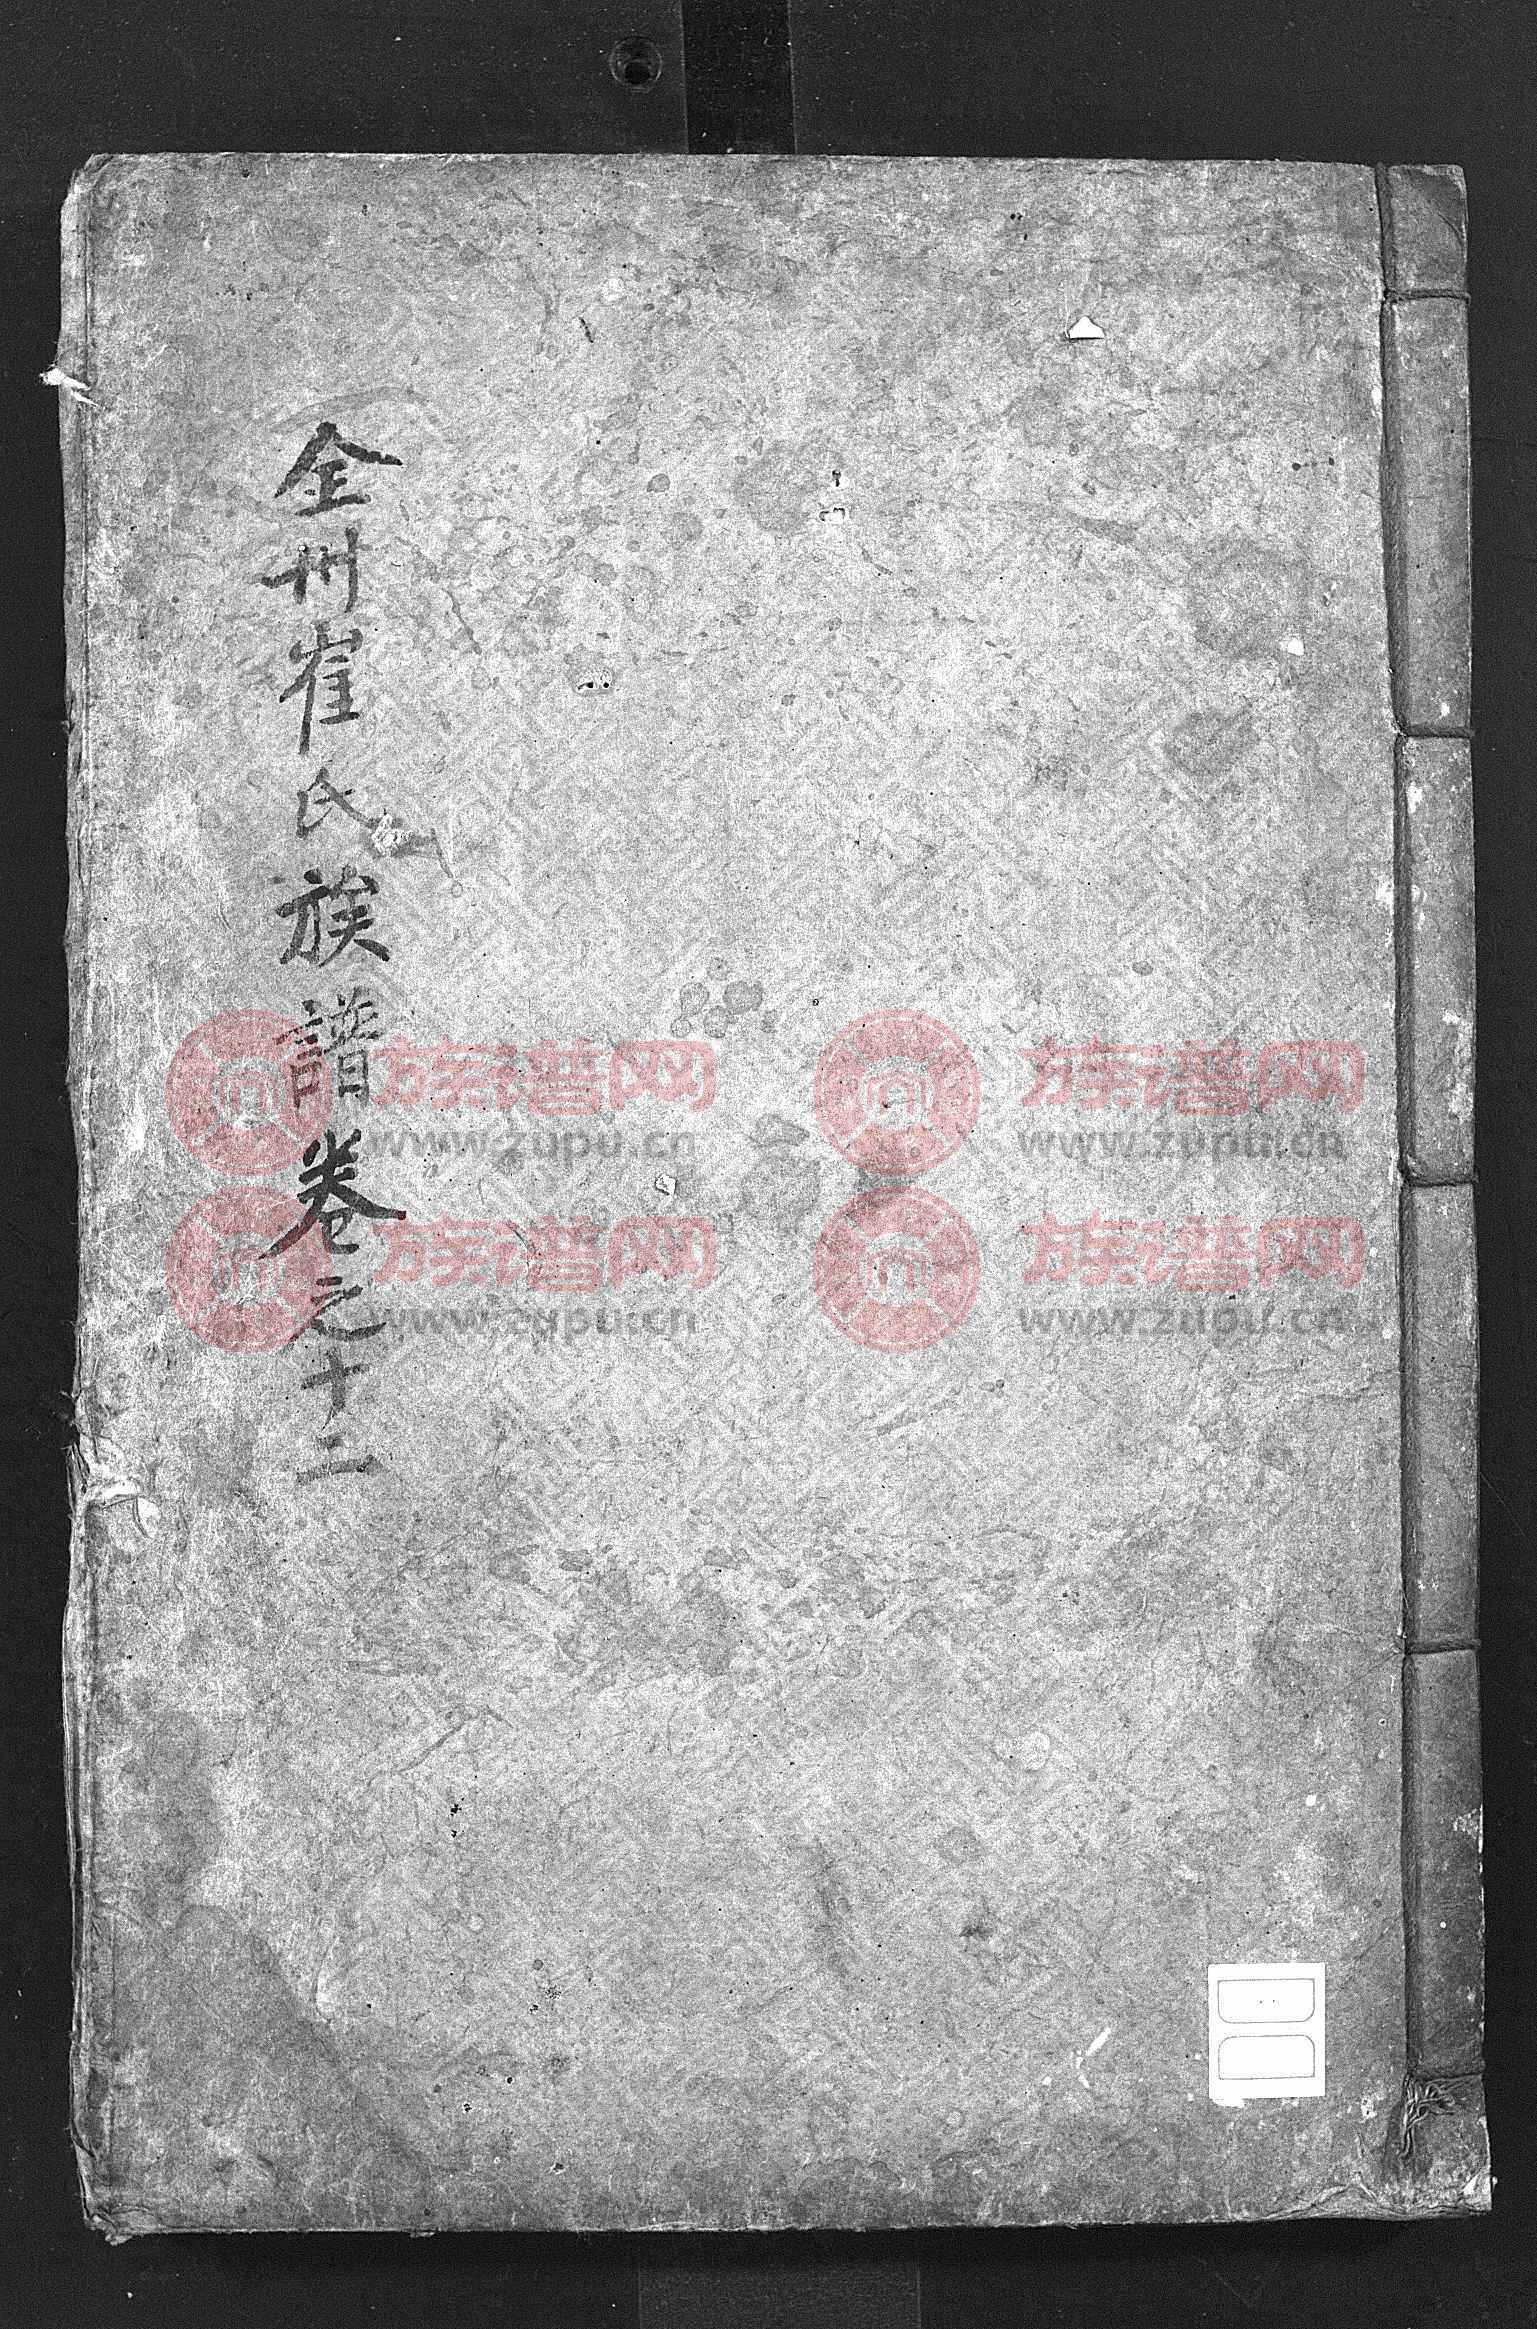 全州崔氏族譜卷之十二
族谱网
www.zupu.cn
族谱网
www.zupu.cn
族谱网
www.zupu.cn
族谱网
www.zupu.cn